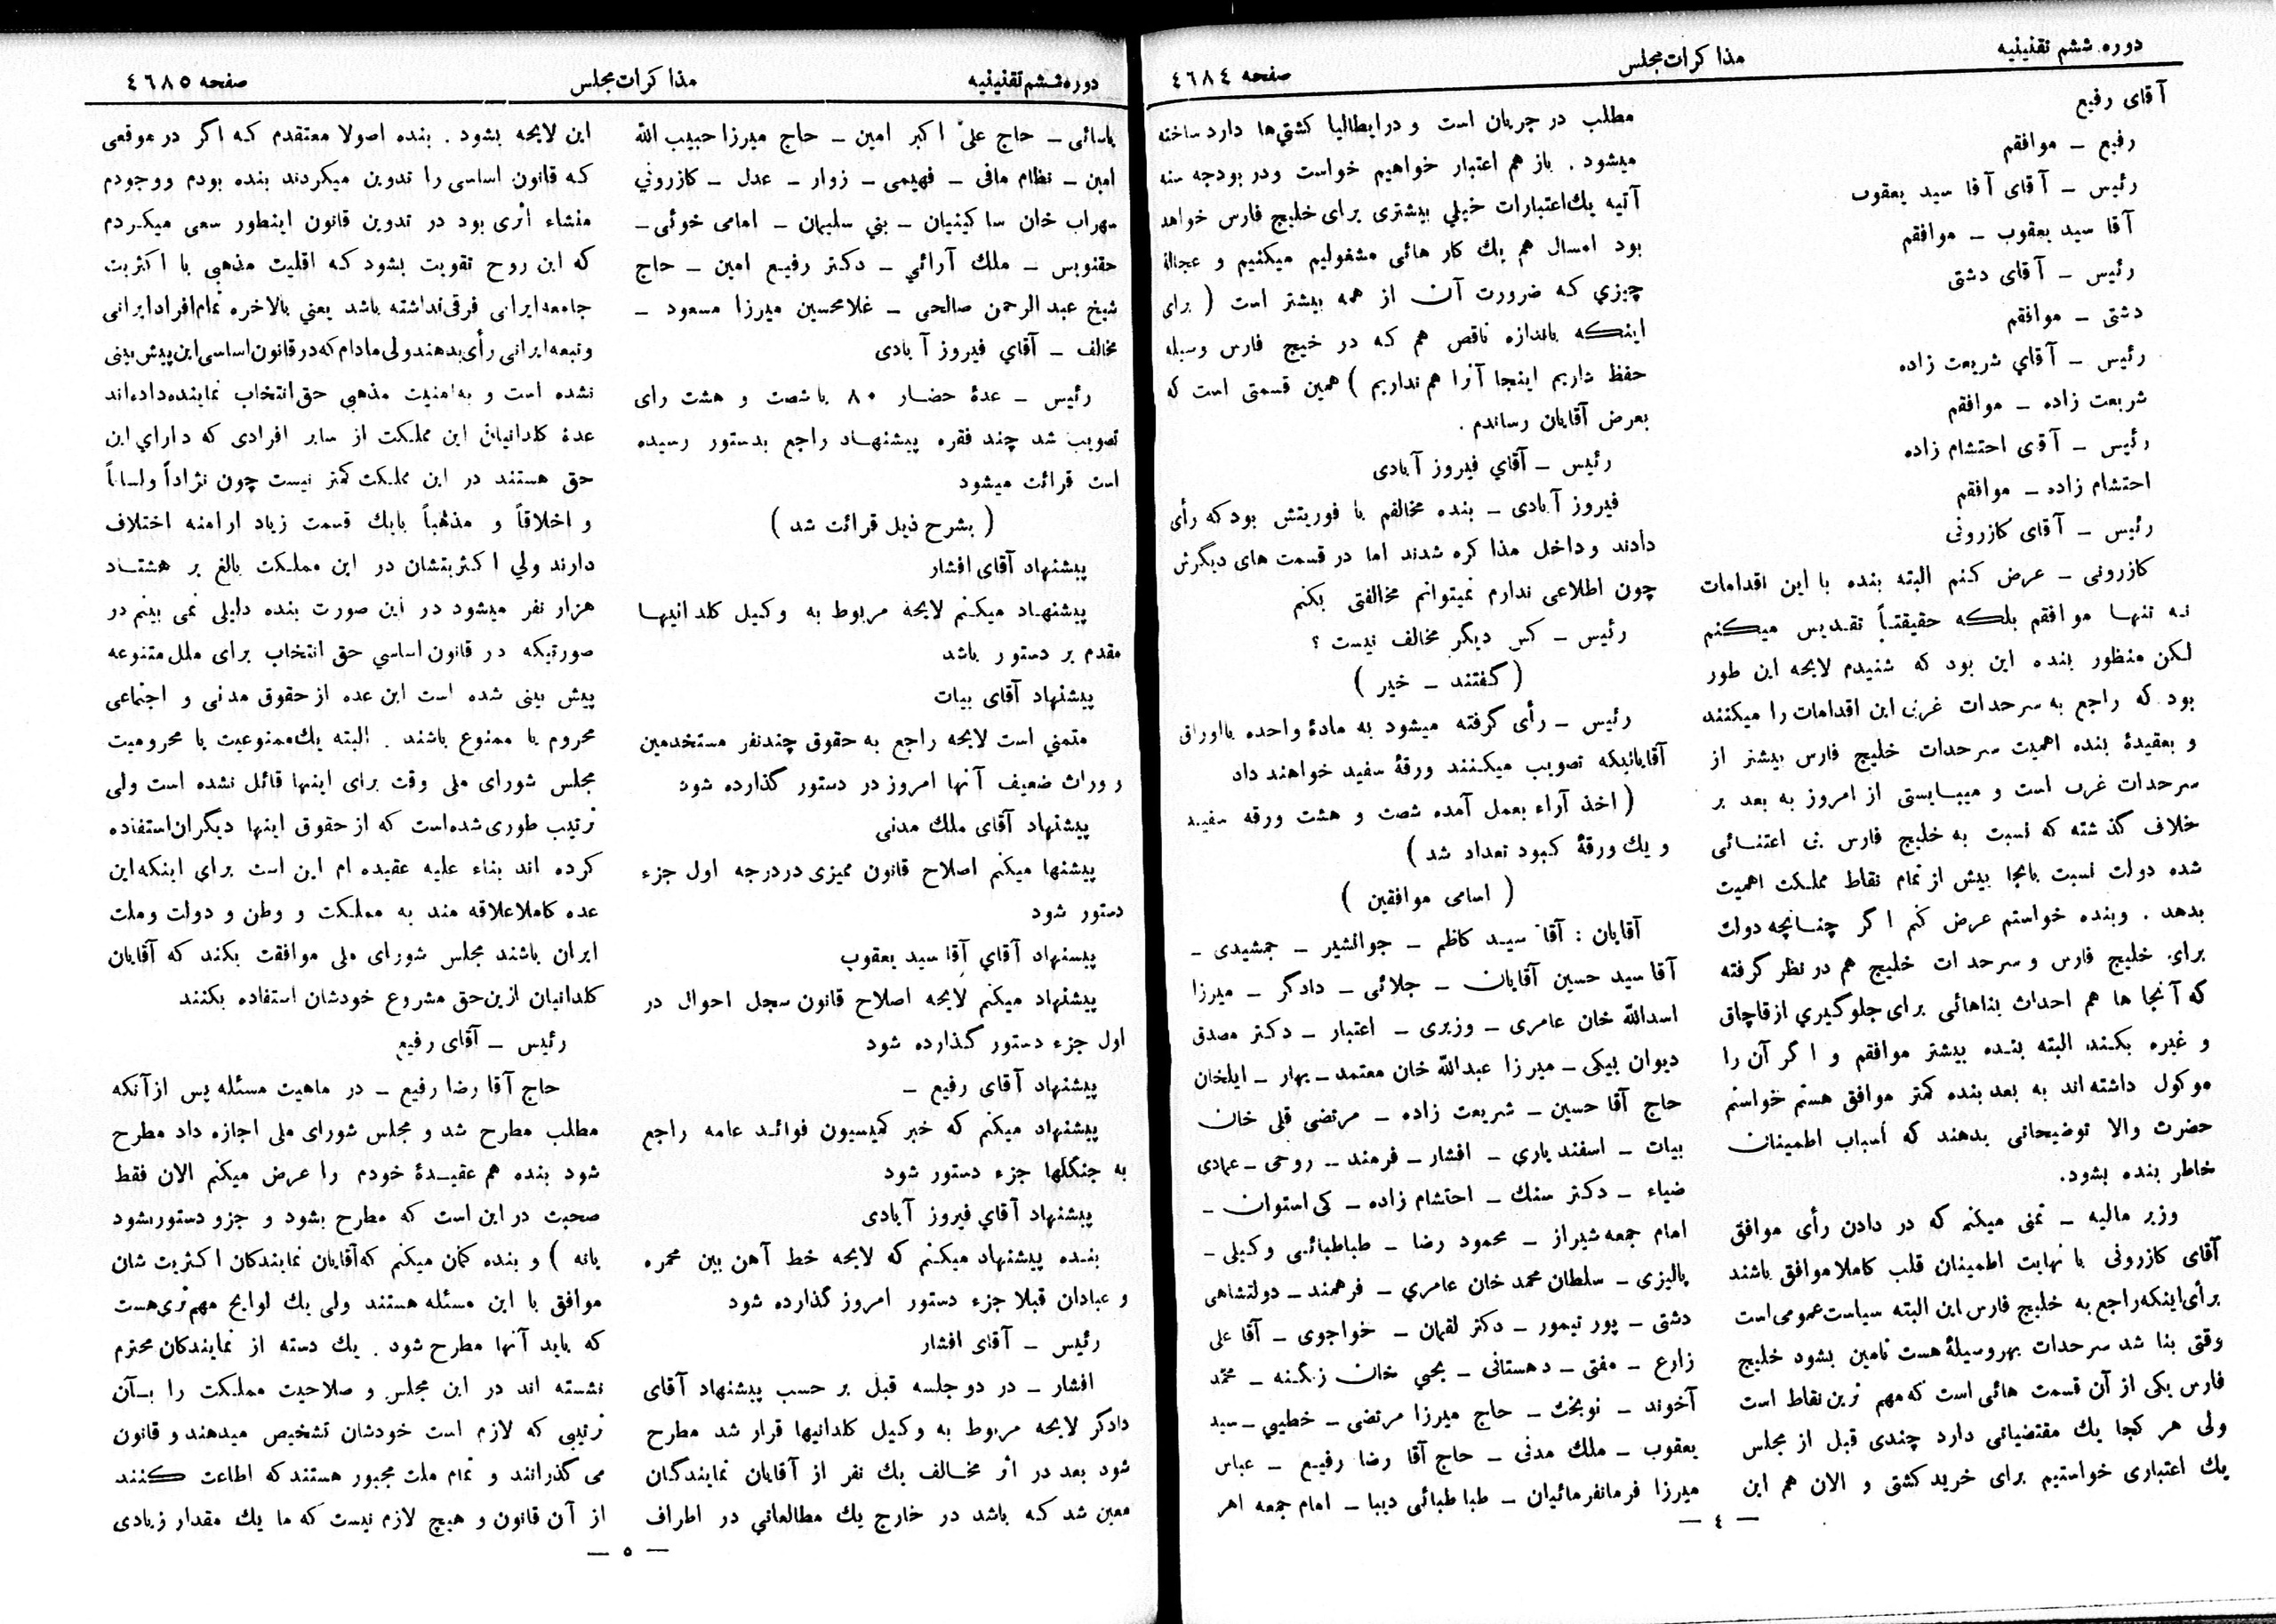 دوره ششم تقنینیه
مذاكرات مجلس
صفحه ٤٦٨٤
آقای رفیع
رفیع – موافقم
رئیس – آقای آقا سید یعقوب
آقا سید یعقوب – موافقم
رئیس – آقای دشتی
دشتی – موافقم
رئیس – آقاي شریعت زاده
شریعت زاده – موافقم
رئیس – آقای احتشام زاده
احتشام زاده – موافقم
رئیس – آقای کازرونی
کازرونی – عرض کنم البته بنده با این اقدامات
نه تنها موافقم بلکه حقیقتاً تقدیس میکنم
لکن منظور بنده این بود که شنیدم لایحه این طور
بود که راجع به سرحدات غربی این اقدامات را میکنند
و بعقیدهٔ بنده اهمیت سرحدات خلیج فارس بیشتر از
سرحدات غرب است و میبایستی از امروز به بعد بر
خلاف گذشته که نسبت به خلیج فارس بی اعتنائی
شده دولت نسبت بانجا بیش از تمام نقاط مملکت اهمیت
بدهد . وبنده خواستم عرض کنم اگر چنانچه دولت
برای خلیج فارس و سرحدات خلیج هم در نظر گرفته
که آنجا ها هم احداث بناهائی برای جلوگیري از قاچاق
و غیره بکند البته بنده بیشتر موافقم و اگر آن را
موکول داشته اند به بعد بنده کمتر موافق هستم خواستم
حضرت والا توضیحاتی بدهند که أسباب اطمینان
خاطر بنده بشود.
وزیر مالیه – تمنی میکنم که در دادن رأی موافق
آقای کازرونی با نهایت اطمینان قلب کاملا موافق باشند
برأی اینکه راجع به خلیج فارس این البته سیاست عمومی است
وقتی بنا شد سرحدات بهر وسیلهٔ هست تامین بشود خلیج
فارس یکی از آن قسمت هائی است که مهم ترین نقاط است
ولی هر کجا یك مقتضیاتی دارد چندی قبل از مجلس
یك اعتباری خواستیم برای خرید کشتی و الان هم این
مطلب در جریان است و در ایطالیا کشتی‌ها دارد ساخته
میشود . باز هم اعتبار خواهیم خواست ودر بودجه سنه
آتیه یك اعتبارات خیلي بیشتری برای خلیج فارس خواهد
بود امسال هم یك کار هائی مشغولیم میکنیم و عجالة
چیزي که ضرورت آن از همه بیشتر است ( برای
اینکه باندازه ناقص هم که در خیج فارس وسیله
حفظ داریم اینجا آنرا هم نداریم ) همین قسمتی است که
بعرض آقایان رساندم .
رئیس – آقاي فیروز آبادی
فیروز آبادی – بنده مخالفم با فوریتش بود که رأی
دادند و داخل مذاکره شدند اما در قسمت های دیگرش
چون اطلاعی ندارم نمیتوانم مخالفتی بکنم
رئیس – کس دیگر مخالف نیست ؟
( گفتند – خیر )
رئیس – رأی گرفته میشود به مادهٔ واحده بااوراق
آقایانیکه تصویب میکنند ورقهٔ سفید خواهند داد
( اخذ آراء بعمل آمده شصت و هشت ورقه سفید
و یك ورقهٔ کبود تعداد شد )
( اسامی موافقین )
آقایان : آقا سید کاظم – جوانشیر – جمشیدی –
آقا سید حسین آقایان – جلائی – دادگر – میرزا
اسدالله خان عامری – وزیری – اعتبار – دکتر مصدق
دیوان بیکی – میرزا عبدالله خان معتمد – بهار – ایلخان
حاج آقا حسین – شریعت زاده – مرتضی قلی خان
بیات – اسفندیاری – افشار – فرمند – روحی – عمادی
ضیاء – دکتر سنك – احتشام زاده – کی استوان –
امام جمعه شیراز – محمود رضا – طباطبائی وکیلی –
پالیزی – سلطان محمد خان عامري – فرهمند – دولتشاهی
دشتی – پور تیمور – دکتر لقمان – خواجوی – آقا علی
زارع – مفتی – دهستانی – یحیي خان زنگنه – محمد
آخوند – نوبخت – حاج میرزا مرتضی – خطیبي – سید
یعقوب – ملك مدنی – حاج آقا رضا رفیع – عباس
میرزا فرمانفرمائیان – طباطبائی دیبا – امام جمعه اهر
— ٤ —
دوره ششم تقنینیه
مذاكرات مجلس
صفحه ٤٦٨٥
یاسائی – حاج علی اکبر امین – حاج میرزا حبیب الله
امین – نظام مافی – فهیمی – زوار – عدل – کازروني
سهراب خان ساکینیان – بني سلیمان – امامی خوئی –
حقنویس – ملك آرائي – دکتر رفیع امین – حاج
شیخ عبدالرحمن صالحی – غلامحسین میرزا مسعود –
مخالف – آقاي فیروز آبادی
رئیس – عدهٔ حضار ٨٠ با شصت و هشت رای
تصویب شد چند فقره پیشنهاد راجع بدستور رسیده
است قرائت میشود
( بشرح ذیل قرائت شد )
پیشنهاد آقای افشار
پیشنهاد میکنم لایحه مربوط به وکیل کلدانیها
مقدم بر دستور باشد
پیشنهاد آقای بیات
متمني است لایحه راجع به حقوق چندنفر مستخدمین
و وراث ضعیف آنها امروز در دستور گذارده شود
پیشنهاد آقای ملك مدنی
پیشنها میکنم اصلاح قانون ممیزی در درجه اول جزء
دستور شود
پیسنهاد آقاي آقا سید یعقوب
پیشنهاد میکنم لایحه اصلاح قانون سجل احوال در
اول جزء دستور گذارده شود
پیشنهاد آقای رفیع –
پیشنهاد میکنم که خبر کمیسیون فوائد عامه راجع
به جنگلها جزء دستور شود
پیشنهاد آقاي فیروز آبادی
بنده پیشنهاد میکنم که لایحه خط آهن بین محمره
و عبادان قبلا جزء دستور امروز گذارده شود
رئیس – آقای افشار
افشار – در دو جلسه قبل بر حسب پیشنهاد آقای
دادگر لایحه مربوط به وکیل کلدانیها قرار شد مطرح
شود بعد در اثر مخالف یك نفر از آقایان نمایندگان
معین شد که باشد در خارج یك مطالعاتي در اطراف
این لایحه بشود . بنده اصولا معتقدم که اگر در موقعی
که قانون اساسی را تدوین میکردند بنده بودم ووجودم
منشاء اثری بود در تدوین قانون اینطور سعی میکردم
که این روح تقویت بشود که اقلیت مذهبی با اکثریت
جامعه ایرانی فرقی نداشته باشد یعني بالاخره تمام افراد ایرانی
و تبعه ایرانی رأی بدهند ولی مادام که در قانون اساسی این پیش بینی
نشده است و به امنیت مذهبي حق انتخاب نماینده داده اند
عدهٔ کلدانیان این مملکت از سایر افرادی که داراي این
حق هستند در این مملکت کمتر نیست چون نژاداً ولساناً
و اخلاقاً و مذهباً بایك قسمت زیاد ارامنه اختلاف
دارند ولي اکثریتشان در این مملکت بالغ بر هشتاد
هزار نفر میشود در این صورت بنده دلیلی نمی بینم در
صورتیکه در قانون اساسي حق انتخاب برای ملل متنوعه
پیش بینی شده است این عده از حقوق مدنی و اجتماعی
محروم یا ممنوع باشند . البته یك ممنوعیت یا محرومیت
مجلس شورای ملی وقت برای اینها قائل نشده است ولی
ترتیب طوری شده است که از حقوق اینها دیگران استفاده
کرده اند بناء علیه عقیده ام این است برای اینکه این
عده کاملا علاقه مند به مملکت و وطن و دولت وملت
ایران باشند مجلس شورای ملی موافقت بکند که آقایان
کلدانیان ازین حق مشروع خودشان استفاده بکنند
رئیس – آقای رفیع
حاج آقا رضا رفیع – در ماهیت مسئله پس از آنکه
مطلب مطرح شد و مجلس شورای ملی اجازه داد مطرح
شود بنده هم عقیدهٔ خودم را عرض میکنم الان فقط
صحبت در این است که مطرح بشود و جزو دستور بشود
یانه ) و بنده گمان میکنم که آقایان نمایندگان اکثریت شان
موافق با این مسئله هستند ولی یك لوایح مهم تری هست
که باید آنها مطرح شود . یك دسته از نمایندگان محترم
نشسته اند در این مجلس و صلاحیت مملکت را بآن
ترتیبی که لازم است خودشان تشخیص میدهند و قانون
می گذرانند و تمام ملت مجبور هستند که اطاعت کنند
از آن قانون و هیچ لازم نیست که ما یك مقدار زیادی
— ٥ —